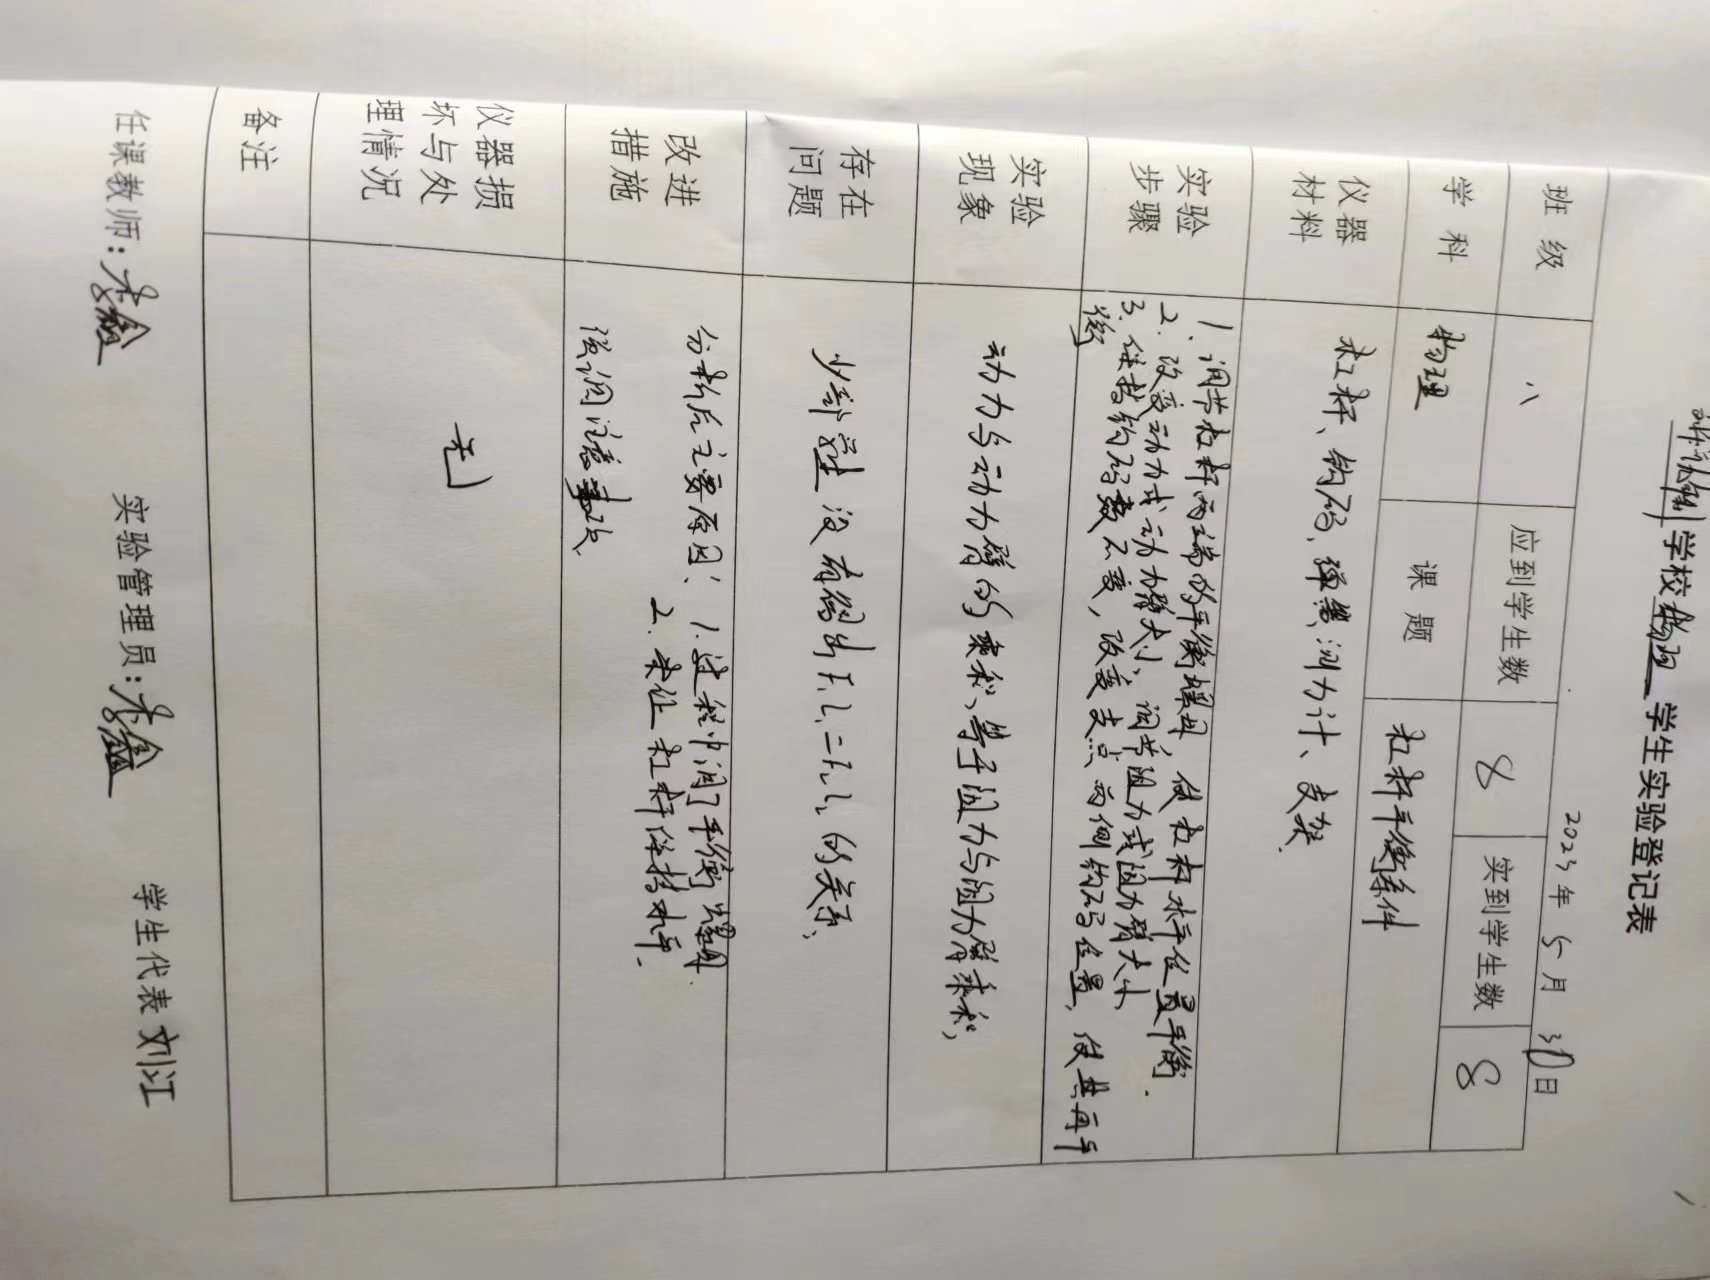 学校物理 学生实验登记表
2023年5月30日
班级 八 应到学生数 8 实到学生数 8
学科 物理 课题 杠杆平衡条件
仪器材料 杠杆、钩码、弹簧测力计、支架.
实验步骤
1. 调节杠杆两端的平衡螺母 使杠杆水平位置平衡.
2. 改变动力或动力臂大小, 调节阻力或阻力臂大小.
3. 保持钩码数不变, 改变支点两侧钩码位置, 使其再平
衡
实验现象 动力与动力臂的乘积, 等于阻力与阻力臂乘积,
存在问题 少部学生没有得出F₁L₁=F₂L₂的关系,
改进措施 分析后主要原因: 1. 过程中调了平衡螺母.
2. 未让杠杆保持水平.
强调注意事项
仪器损坏与处理情况 无
备注
任课教师: 李鑫 实验管理员: 李鑫 学生代表 刘江